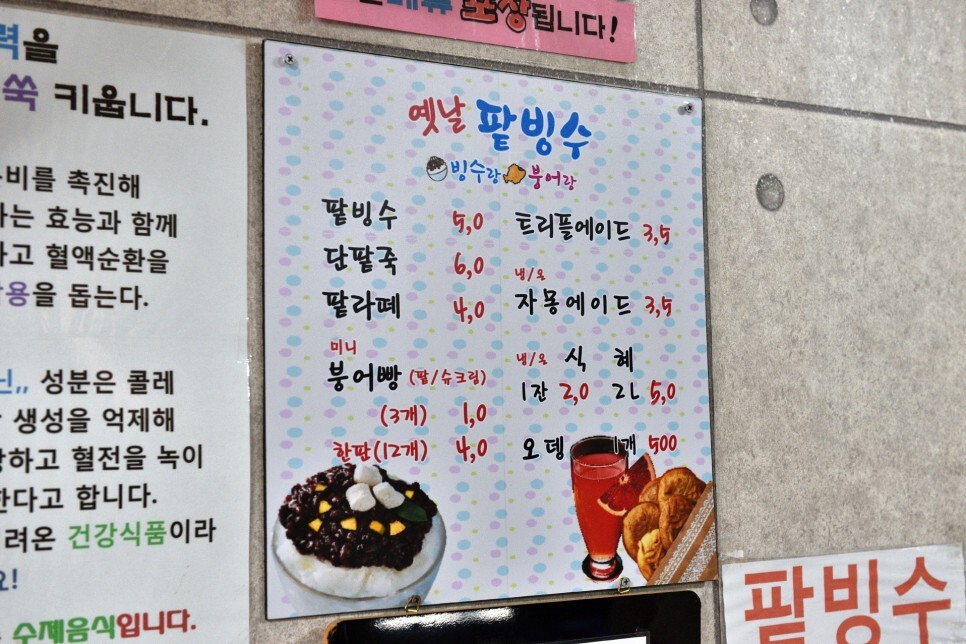 포장됩니다!
력을
쑥 키웁니다.
비를 촉진해
하는 효능과 함께
하고 혈액순환을
용을 돕는다.
닌,, 성분은 콜레
생성을 억제해
하고 혈전을 녹이
한다고 합니다.
려온 건강식품이라
요!
수제음식입니다.
옛날 팥빙수
빙수랑 붕어랑
팥빙수 5,0
단팥죽 6,0
팥라떼 4,0
미니
붕어빵 (팥/슈크림)
(3개) 1,0
한판(12개) 4,0
트리플에이드 3,5
냉/온
자몽에이드 3,5
냉/온 식혜
1잔 2,0 2L 5,0
오뎅 1개 500
팥빙수